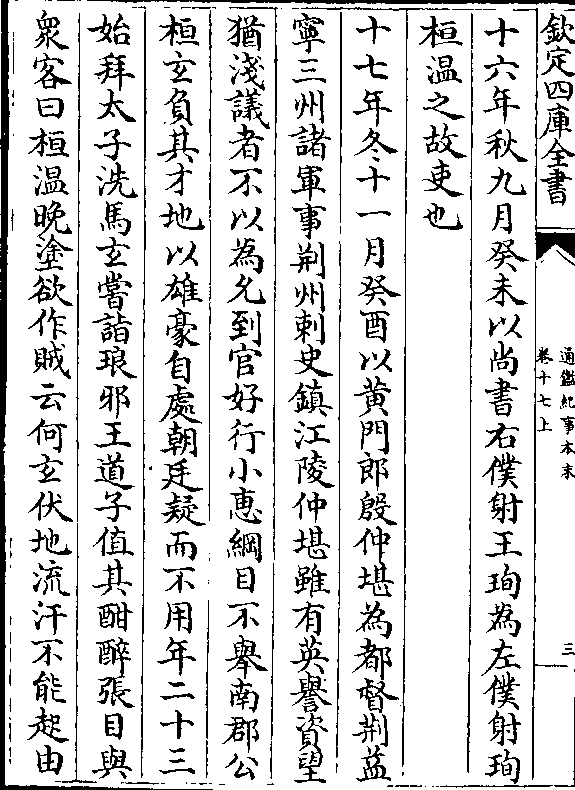 欽定四庫全書
通鑑紀事本末
卷十七上
三
十六年秋九月癸未以尚書右僕射王珣為左僕射珣
桓温之故吏也
十七年冬十一月癸酉以黄門郎殷仲堪為都督荆益
寧三州諸軍事荆州刺史鎮江陵仲堪雖有英譽資望
猶淺議者不以為允到官好行小惠綱目不舉南郡公
桓玄負其才地以雄豪自處朝廷疑而不用年二十三
始拜太子洗馬玄嘗詣琅邪王道子值其酣醉張目與
衆客曰桓温晚塗欲作賊云何玄伏地流汗不能起由